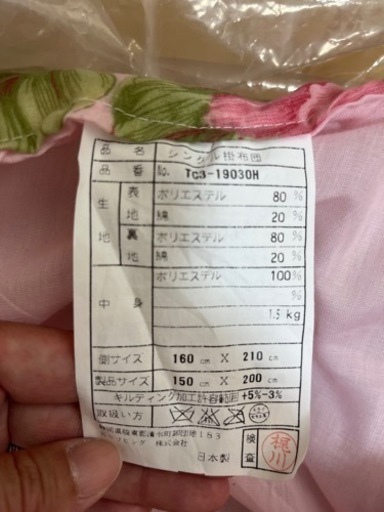 品 名 シングル掛布団
品 番 No. TC3-19030H
生地 表地 ポリエステル 80 %
綿 20 %
裏地 ポリエステル 80 %
綿 20 %
中身 ポリエステル 100 %
%
1.5 kg
側サイズ 160 cm X 210 cm
製品サイズ 150 cm X 200 cm
キルティング加工許容範囲 +5%-3%
取扱い方
町卸団地183
リビング 株式会社
日本製
検査 梶川